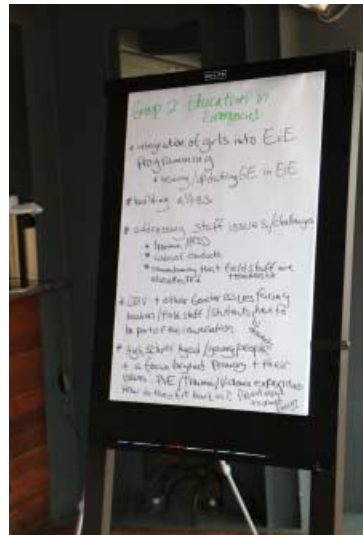 Group 2 Education in
Emergencies
* integration of girls into EiE
programming
* training/updating GE in EiE
* building allies
* addressing staff issues/challenges
* trauma/PTSD
* codes of conduct
* that field staff are
* GBV + other Gender issues facing
teachers/field staff/students have to
be part of the conversation
* High School Aged/young people
+ a focus beyond Primary + their
PVE/Trauma/Violence experiences
How do they fit back in?